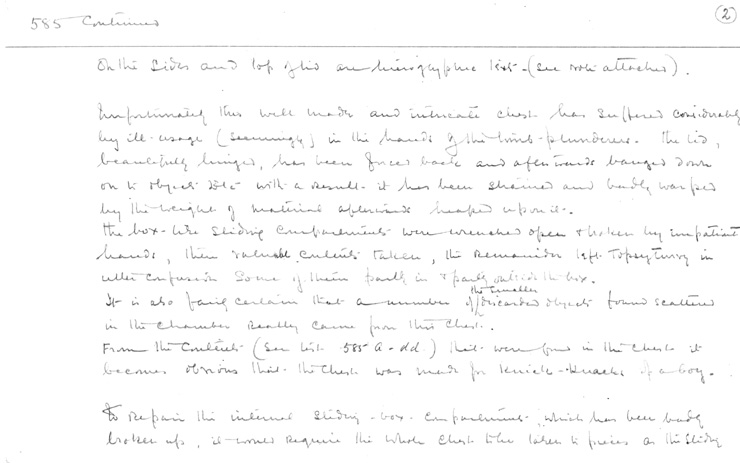 585 Continued
2
On the sides and top of lid are hieroglyphic text - (see note attached).
Unfortunately this well made and intricate chest has suffered considerably
by ill-usage (seemingly) in the hands of the tomb-plunderers. The lid,
beautifully hinged, has been forced back and afterwards banged down
on to object with a result it has been strained and badly warped
by the weight of material afterwards heaped upon it.
The box-like sliding compartments were wrenched open & broken by impatient
hands, their valuable contents taken, the remainder left topsyturvy in
utter confusion some of them partly in & partly outside the box.
It is also fairly certain that a number of the smaller discarded objects found scattered
in the Chamber really came from this Chest.
From the Contents (see list 585 a-dd) that were found in the Chest it
becomes obvious that the Chest was made for Knick-Knacks of a boy.
To repair the internal sliding-box-compartments which has been badly
broken up, it would require the whole Chest to be taken to pieces as the sliding